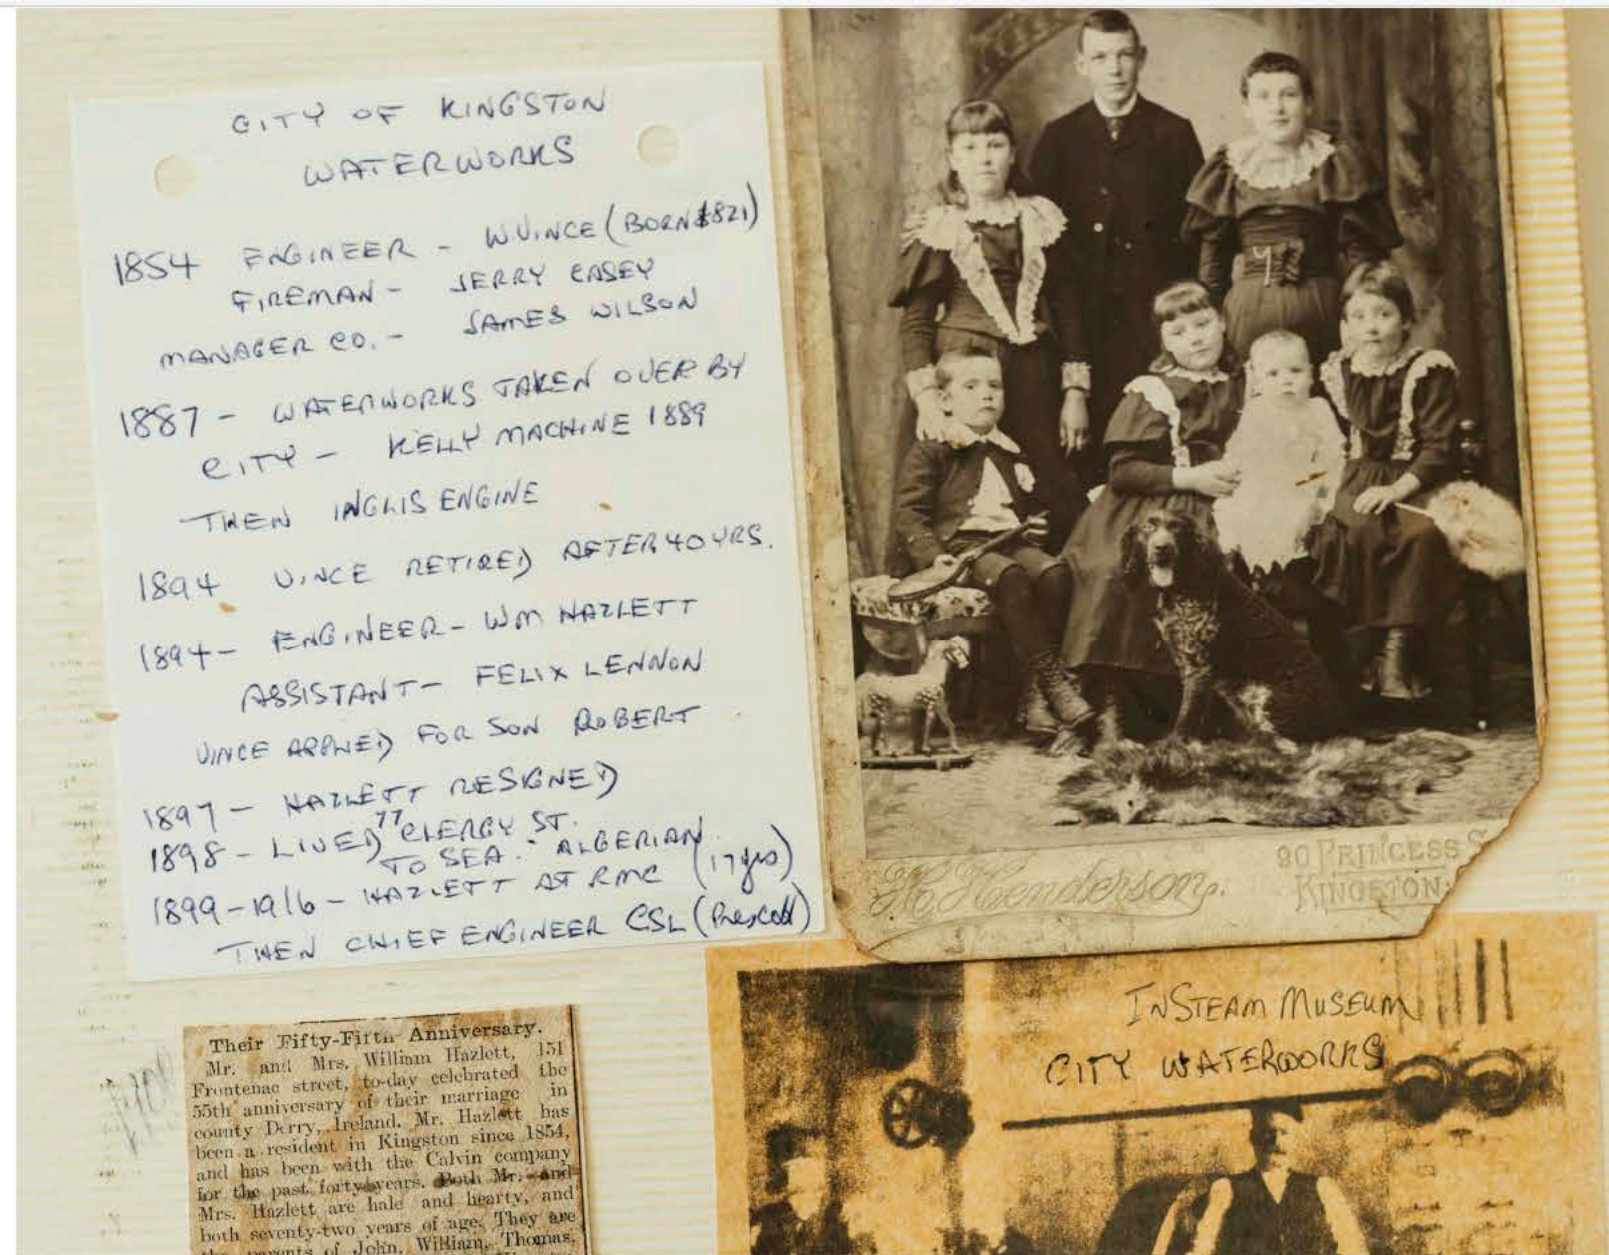 CITY OF KINGSTON
WATERWORKS
1854 ENGINEER - W.VINCE (BORN 1821)
FIREMAN - JERRY CASEY
MANAGER CO. - JAMES WILSON
1887 - WATERWORKS TAKEN OVER BY
CITY - KELLY MACHINE 1889
THEN INGLIS ENGINE
1894 VINCE RETIRED AFTER 40 YRS.
1894 - ENGINEER - WM HAZLETT
ASSISTANT - FELIX LENNON
VINCE APPLIED FOR SON ROBERT
1897 - HAZLETT RESIGNED
1898 - LIVED 77 CLERGY ST.
TO SEA - ALGERIAN
1899-1916 - HAZLETT AT RMC (17 yrs)
THEN CHIEF ENGINEER CSL (Prescott)
H. Henderson.
90 PRINCESS S
KINGSTON
Their Fifty-Fifth Anniversary.
Mr. and Mrs. William Hazlett, 151
Frontenac street, to-day celebrated the
55th anniversary of their marriage in
county Derry, Ireland. Mr. Hazlett has
been a resident in Kingston since 1854,
and has been with the Calvin company
for the past forty years. Both Mr. and
Mrs. Hazlett are hale and hearty, and
both seventy-two years of age. They are
the parents of John, William, Thomas,
IN STEAM MUSEUM
CITY WATERWORKS